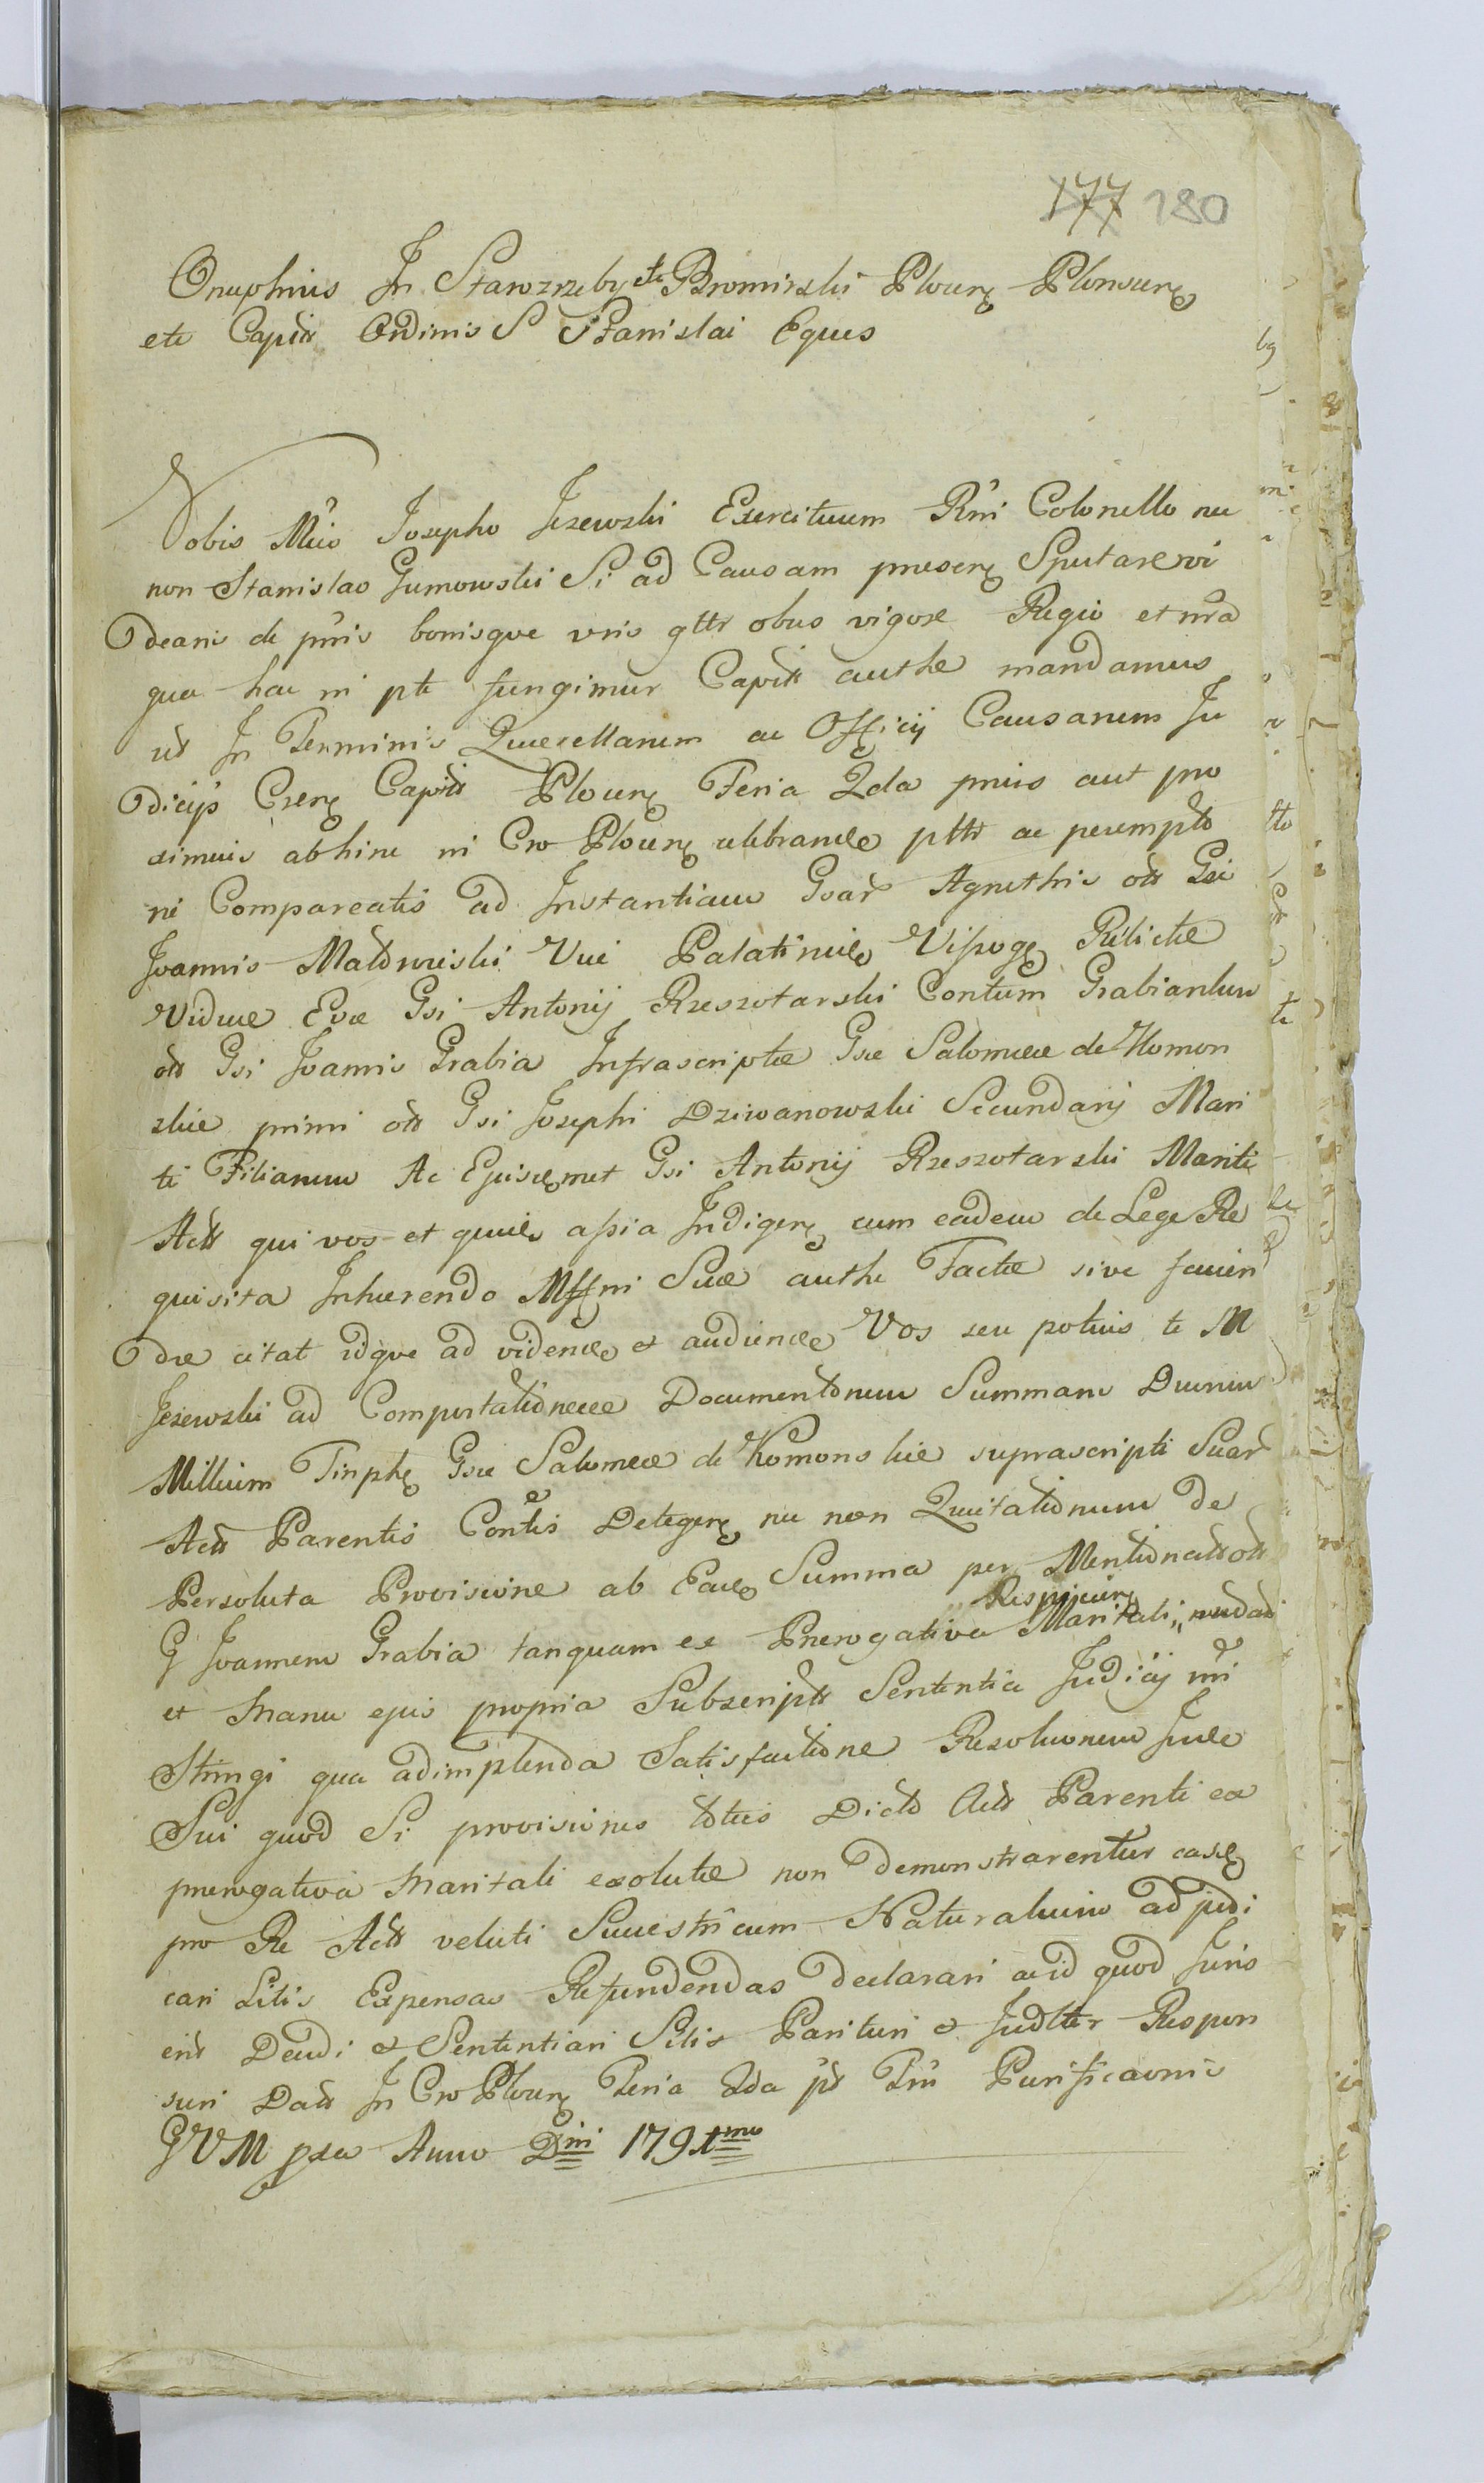 177 180
Onuphrius In Starozrzeby etc Bromirski Plocen Plonscen
etc Capitt Ordinis S Stanislai Eques
Vobis Mcis Josepho Jezewski Exercituum Rni Colonello nec
non Stanislao Gumowski Si ad Causam presen Sputare vi
deans de pnis bonisque vris gttr obus vigore Regio et nra
qua hac in pte fungimur Capitt authe mandamus
ut In Terminis Querellarum ac Officij Causarum Ju
dicijs Csren Capitt Plocen Feria 2da prius aut pro
ximius abhinc in Cro Plocen celebrandae pttr ac perempto
rie Compareatis ad Instantiam Gsar Agnethis ott Gsi
Joannis Maldrzeiski Vice Palatini Vissogr Relictae
Viduae Evae Gsi Antonij Rzeszotarski Contum Grabiankow
ott Gsi Joannis Grabia Infrascriptae Gsae Salomeae de Komon
skie primi ott Gsi Josephi Dziwanowski Secundarij Mari
ti Filiarum Ac Ejusdemet Gsi Antonij Rzeszotarski Mariti
Actt qui vos et quivis assia Indigen cum eadem de Lege Re
quisita Inhaerendo Mffni Suae authe Factae sive facien
dae citat idque ad videndum et audiendum Vos seu potius te M
Jezewski ad Comportationem Documentorum Summam Duorum
Millium Tinph Gsae Salomeae de Komonskie suprascripti Suar
Actt Parentis Contis Detegen nec non Quitationum de
Persoluta Provisione ab Eadem Summa per Mentionatt ott
G Joannem Grabia tanquam ex Prerogativa Maritali „ Respicien
et Manu ejus propria Subscriptt Sententia Judicij nri
Stringi qua adimplenda Satisfactione Resolvonem
Sui quod Si provisiones toties Dicto Actt Parenti ex
prerogativa Maritali exolutae non demonstrarentur easdem
pro Re Actt veluti Succestricum Naturalium adjudi
cari Litis Expensas Refundendas declarari acid quod Juris
erit Decidi et Sententiari Sitis Parituri et Judltter Respon
suri Datt In Cro Plocen Feria 2da pt Ftu Purificaonis
GVM pxa Anno Dni 1791mo